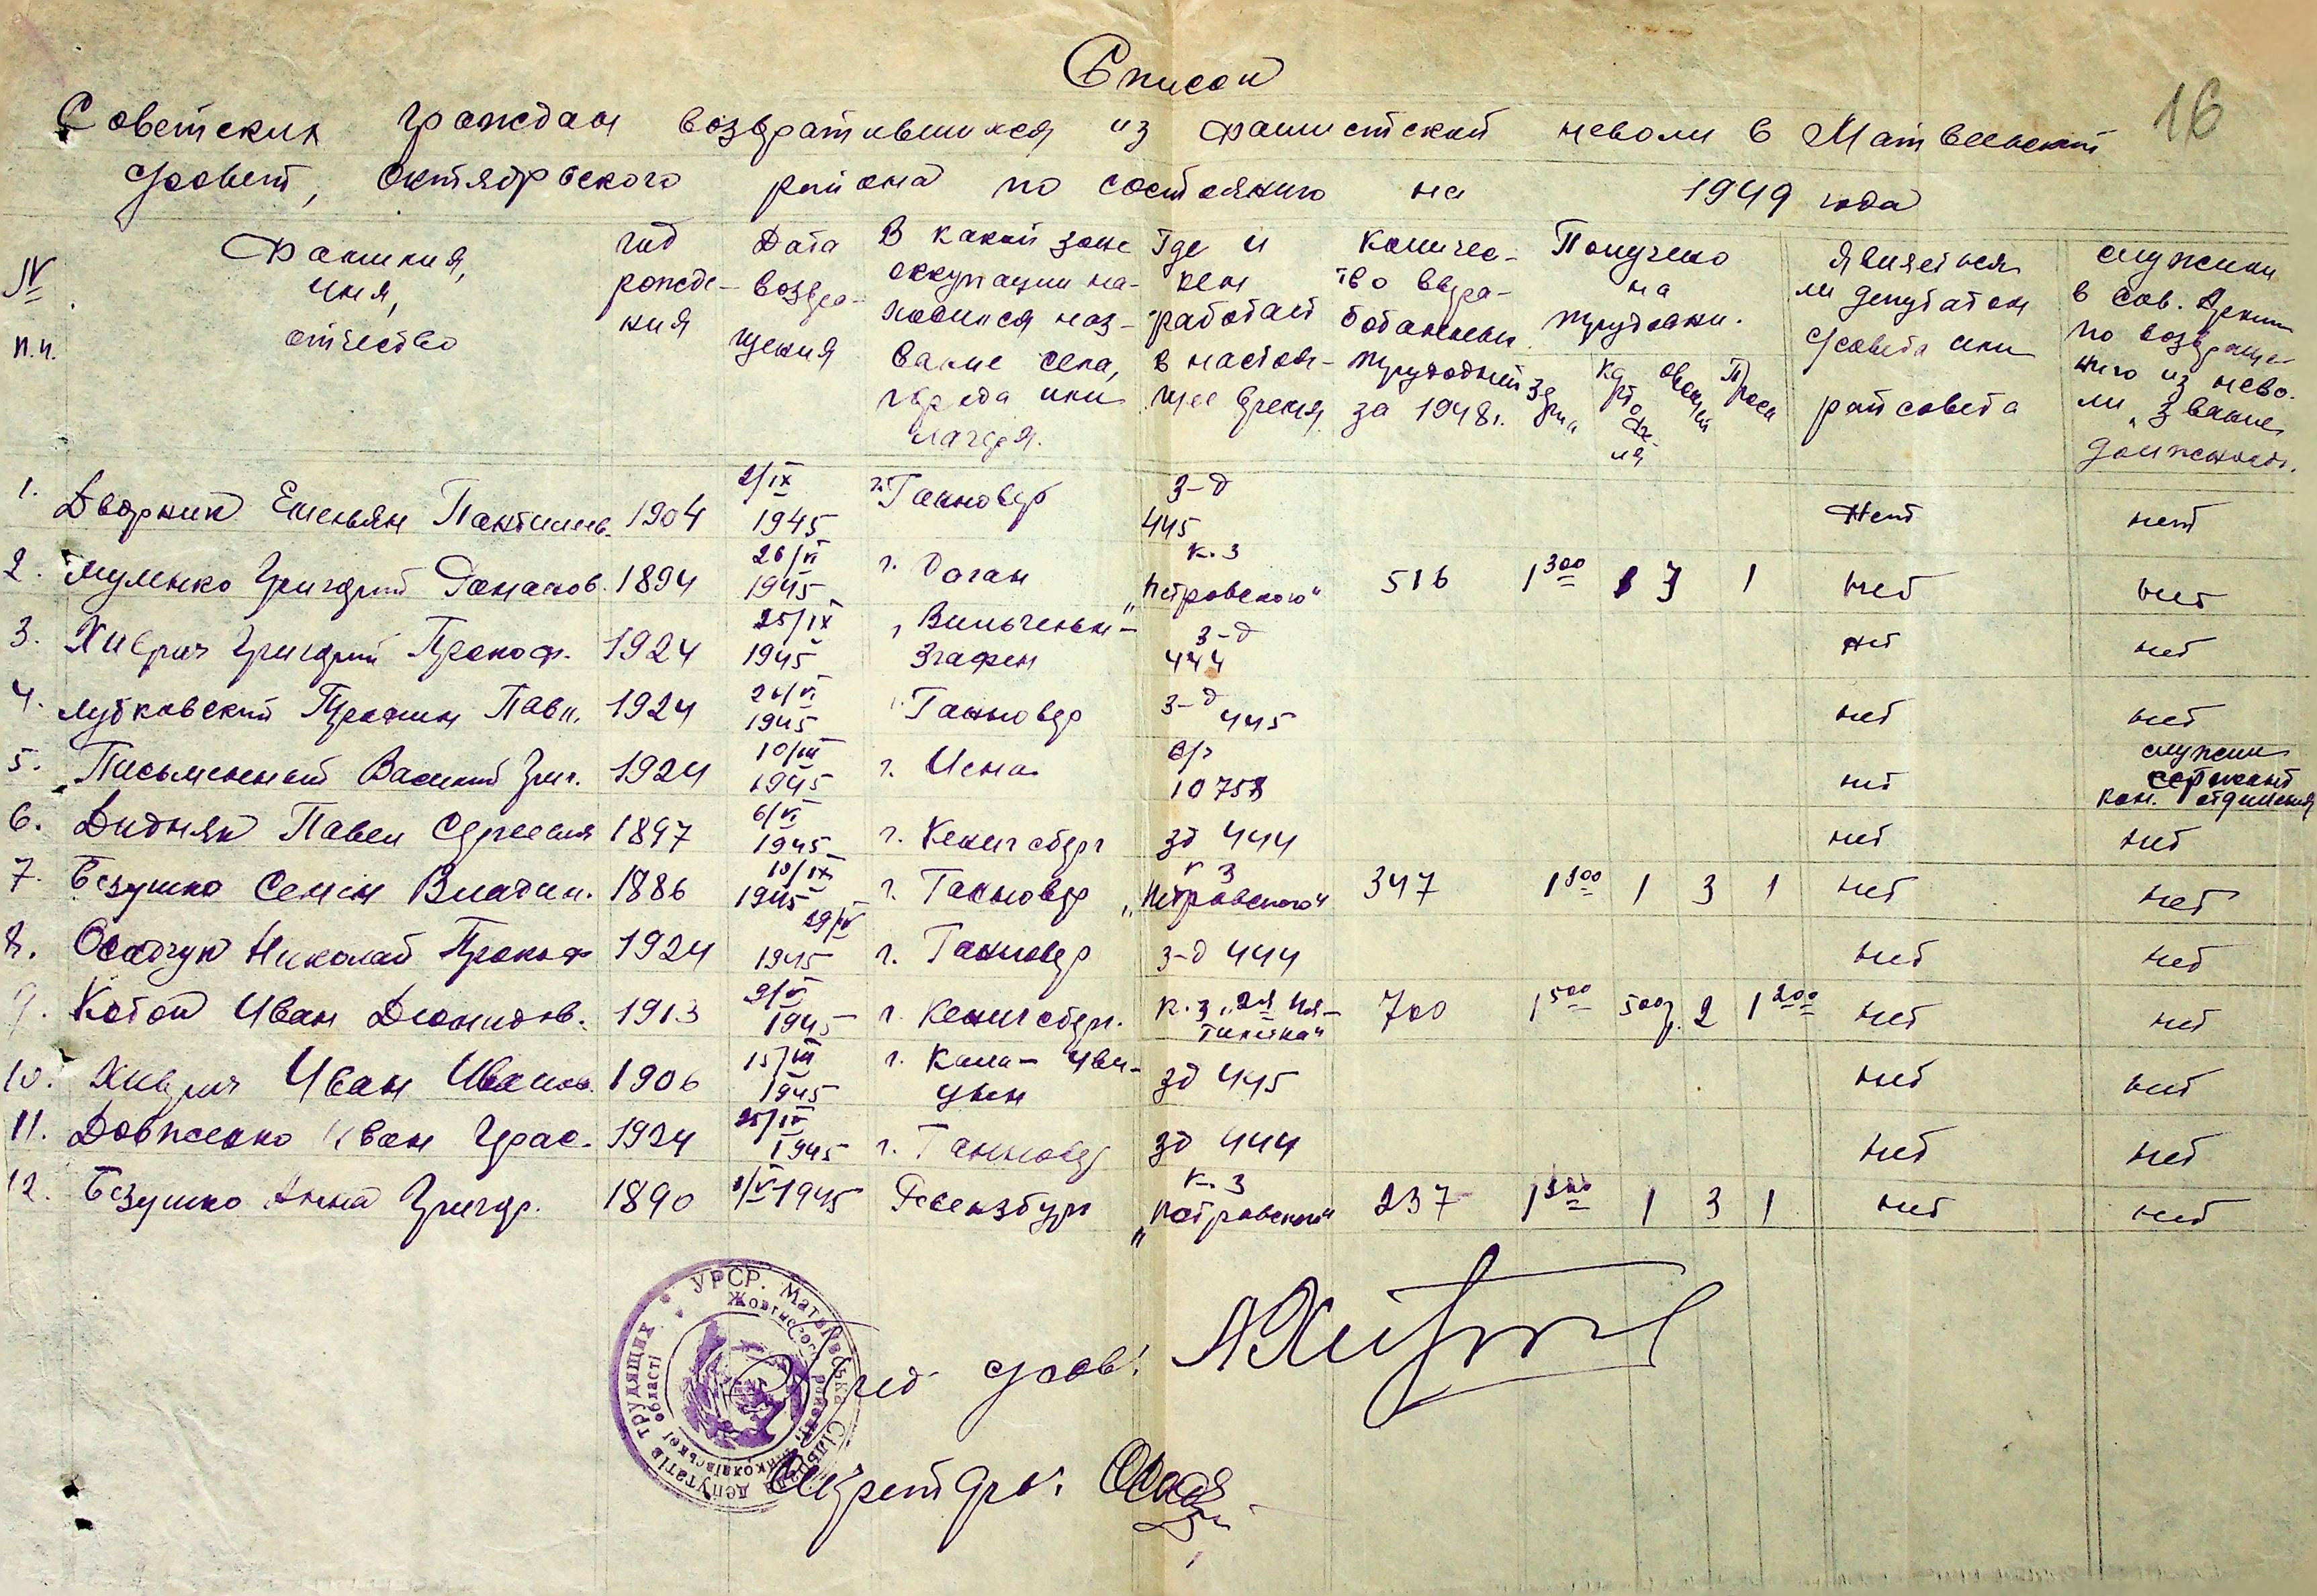 Список
16
Советских граждан возвратившихся из фашистской неволи в Матвеевский
с/совет, Октябрьского района по состоянию на 1949 года
№ п.п. Фамилия, имя, отчество год рождения Дата возвращения В какой зоне оккупации находился название села, города или лагеря. Где и кем работает в настоящее время Количество выработанных трудодней за 1948 г. Получено на трудодни. зерна картофеля овощей Проса Является ли депутатом с/совета или райсовета служил в сов. Армии по возвращению из неволи, звание, должность.
1. Дворник Емельян Пантилив. 1904 2/IX 1945 г. Ганновер з-д 445 Нет нет
2. Мумнко Григорий Романов. 1894 26/VI 1945 г. Даган к.з „Петровского" 516 1 300 1 3 1 нет нет
3. Хиврич Григорий Прокоф. 1924 25/IX 1945 Вильчельм-Згафен з-д 444 нет нет
4. Лубковский Трофим Павл. 1924 26/VI 1945 г. Ганновер з-д 445 нет нет
5. Письменный Василий Григ. 1924 10/III 1945 г. Иена в/ч 10758 нет служил сержант ком. отделения
6. Дидняк Павел Сергеевич 1897 6/VI 1945 г. Кенигсберг зд 444 нет нет
7. Безушко Семен Владим. 1886 10/IX 1945 г. Ганновер к з „Петровского" 347 1 300 1 3 1 нет нет
8. Осадчук Николай Прокоф 1924 29/IV 1945 г. Ганновер з-д 444 нет нет
9. Котой Иван Диомидов. 1913 9/VI 1945 г. Кенигсберг. к.з „2-я Пятилетка" 700 1 500 500г. 2 1 200 нет нет
10. Хиврич Иван Иванов. 1906 15/III 1945 г. зд 445 нет нет
11. Довженко Иван Герас. 1924 25/IV 1945 г. Ганновер зд 444 нет нет
12. Безушко Анна Григор. 1890 1945 Ревензбург к.з „Петровского" 237 1 300 1 3 1 нет нет
УРСР. Матвіївська сільська рада депутатів трудящих
Жовтневого району, Миколаївської області
Пред с/сов.
Секретарь.